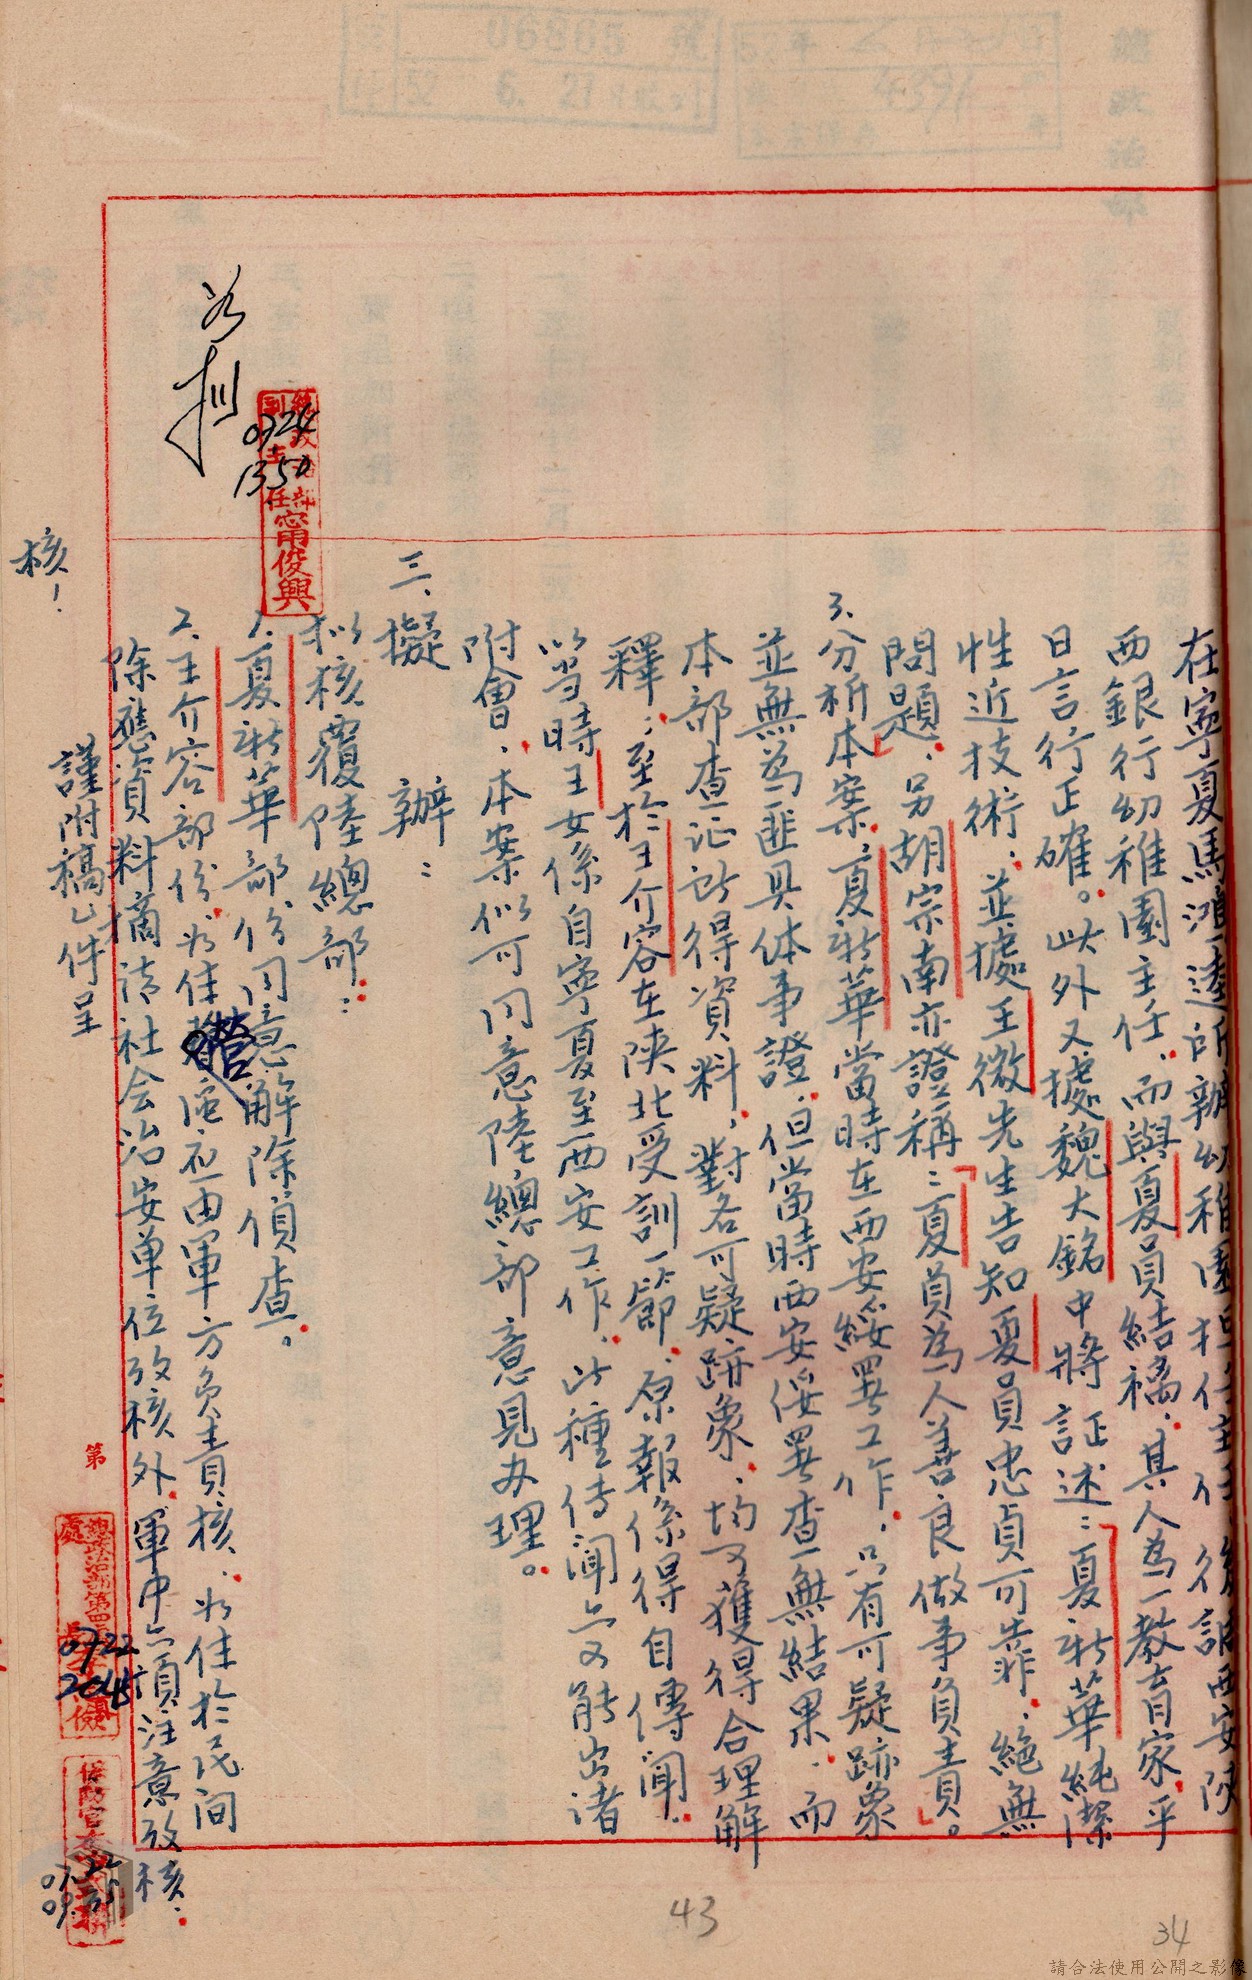 在寧夏馬鴻逵所辦幼稚園担任主任後調西安陝
西銀行幼稚園主任、而與夏員結褵、其人為一教育家、平
日言行正確。此外又據魏大銘中將証述：「夏新華純潔
性近技術、並據王微先生告知夏員忠貞可靠、絕無
問題」、另胡宗南亦證稱：「夏員為人善良做事負責」。
3.分析本案、夏新華當時在西安綏署工作、只有可疑跡象
並無為匪具体事證、但當時西安綏署查無結果、而
本部查証所得資料、對各可疑跡象、均可獲得合理解
釋；至於王介容在陝北受訓一節、原報係得自傳聞、
以当時王女係自寧夏至西安工作、此種传聞亦可能出诸
附會、本案似可同意陸總部意見办理。
三、擬辦：
拟核覆陸總部：
1.夏新華部份同意解除偵查。
2.王介容部份、如住營區应由軍方负責核、如住於民间
除應資料摘请社会治安单位攷核外、軍中亦須注意攷核、
謹附稿乙件呈
核！
如擬
0724
1350
總政治部
副主任
甯俊興
第
總政治部第四
處
0722
2045
保防官
07.22
43
34
請合法使用公開之影像